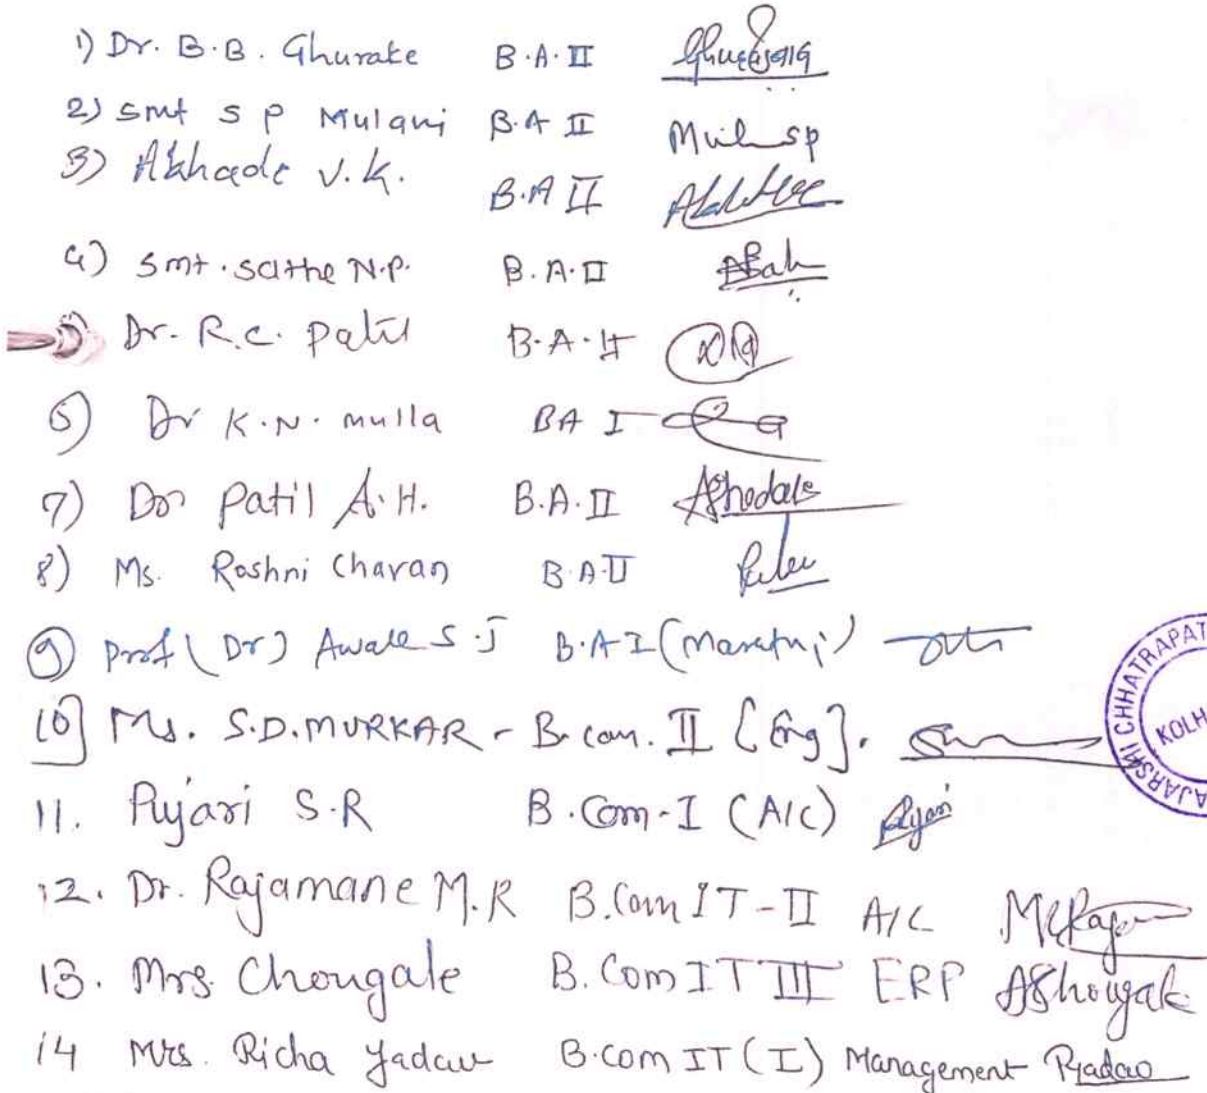 1) Dr. B.B. Ghurake B.A.II
2) Smt S P Mulani B.A II Mul sp
3) Akhade V.K. B.A II
4) Smt. Sathe N.P. B.A.II
Dr. R.C. Patil B.A.II
6) Dr K.N. mulla BA I
7) Dr Patil A.H. B.A.II
8) Ms. Roshni Chavan B.A.II
9) Prof (Dr) Awale S.J B.A I (Marathi)
10] Ms. S.D. MURKAR - B.com. II [Eng].
11. Pujari S.R B.Com-I (A/C) Pujari
12. Dr. Rajamane M.R B.Com IT-II A/C
13. Mrs. Chougale B.Com IT III ERP AChougale
14 Mrs. Richa Yadav B.com IT (I) Management Ryadav
RAJARSHI CHHATRAPAT
KOLH